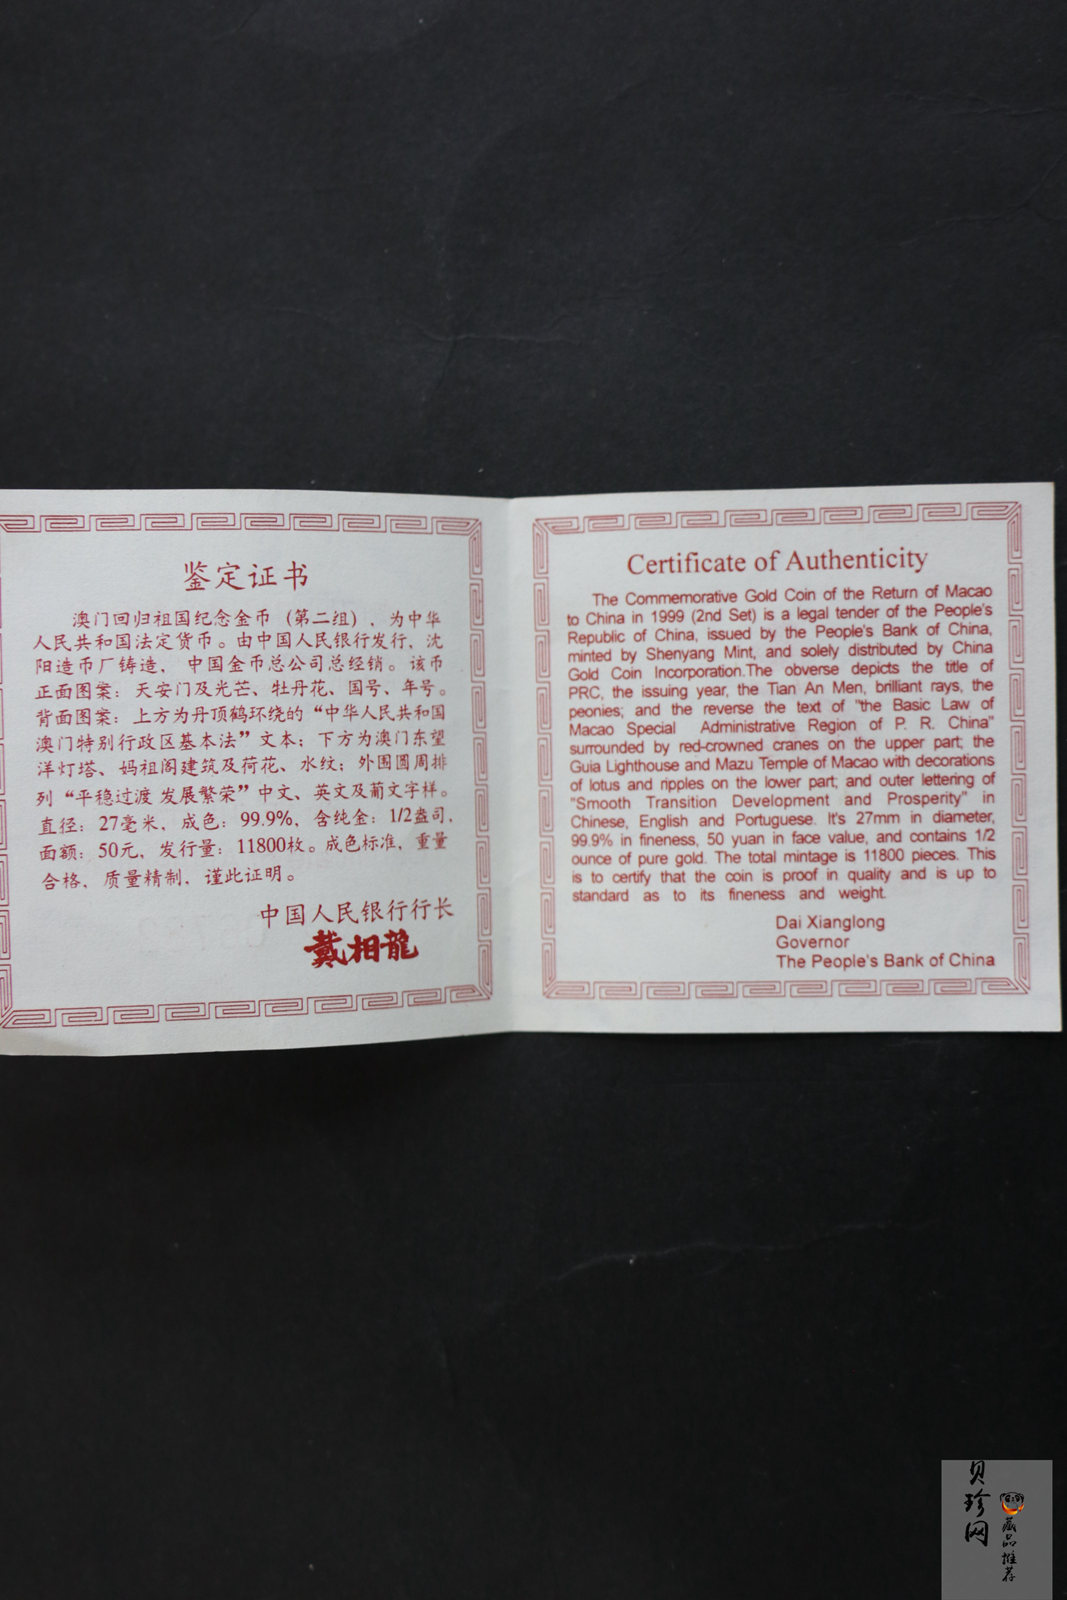 鉴定证书
澳门回归祖国纪念金币（第二组），为中华
人民共和国法定货币。由中国人民银行发行，沈
阳造币厂铸造，中国金币总公司总经销。该币
正面图案：天安门及光芒、牡丹花、国号、年号。
背面图案：上方为丹顶鹤环绕的“中华人民共和国
澳门特别行政区基本法”文本；下方为澳门东望
洋灯塔、妈祖阁建筑及荷花、水纹；外围圆周排
列“平稳过渡 发展繁荣”中文、英文及葡文字样。
直径：27毫米，成色：99.9%，含纯金：1/2盎司，
面额：50元，发行量：11800枚。成色标准，重量
合格，质量精制，谨此证明。
中国人民银行行长
戴相龍
Certificate of Authenticity
The Commemorative Gold Coin of the Return of Macao
to China in 1999 (2nd Set) is a legal tender of the People's
Republic of China, issued by the People's Bank of China,
minted by Shenyang Mint, and solely distributed by China
Gold Coin Incorporation.The obverse depicts the title of
PRC, the issuing year, the Tian An Men, brilliant rays, the
peonies; and the reverse the text of "the Basic Law of
Macao Special Administrative Region of P. R. China"
surrounded by red-crowned cranes on the upper part; the
Guia Lighthouse and Mazu Temple of Macao with decorations
of lotus and ripples on the lower part; and outer lettering of
"Smooth Transition Development and Prosperity" in
Chinese, English and Portuguese. It's 27mm in diameter,
99.9% in fineness, 50 yuan in face value, and contains 1/2
ounce of pure gold. The total mintage is 11800 pieces. This
is to certify that the coin is proof in quality and is up to
standard as to its fineness and weight.
Dai Xianglong
Governor
The People's Bank of China
贝珍网
藏品推荐